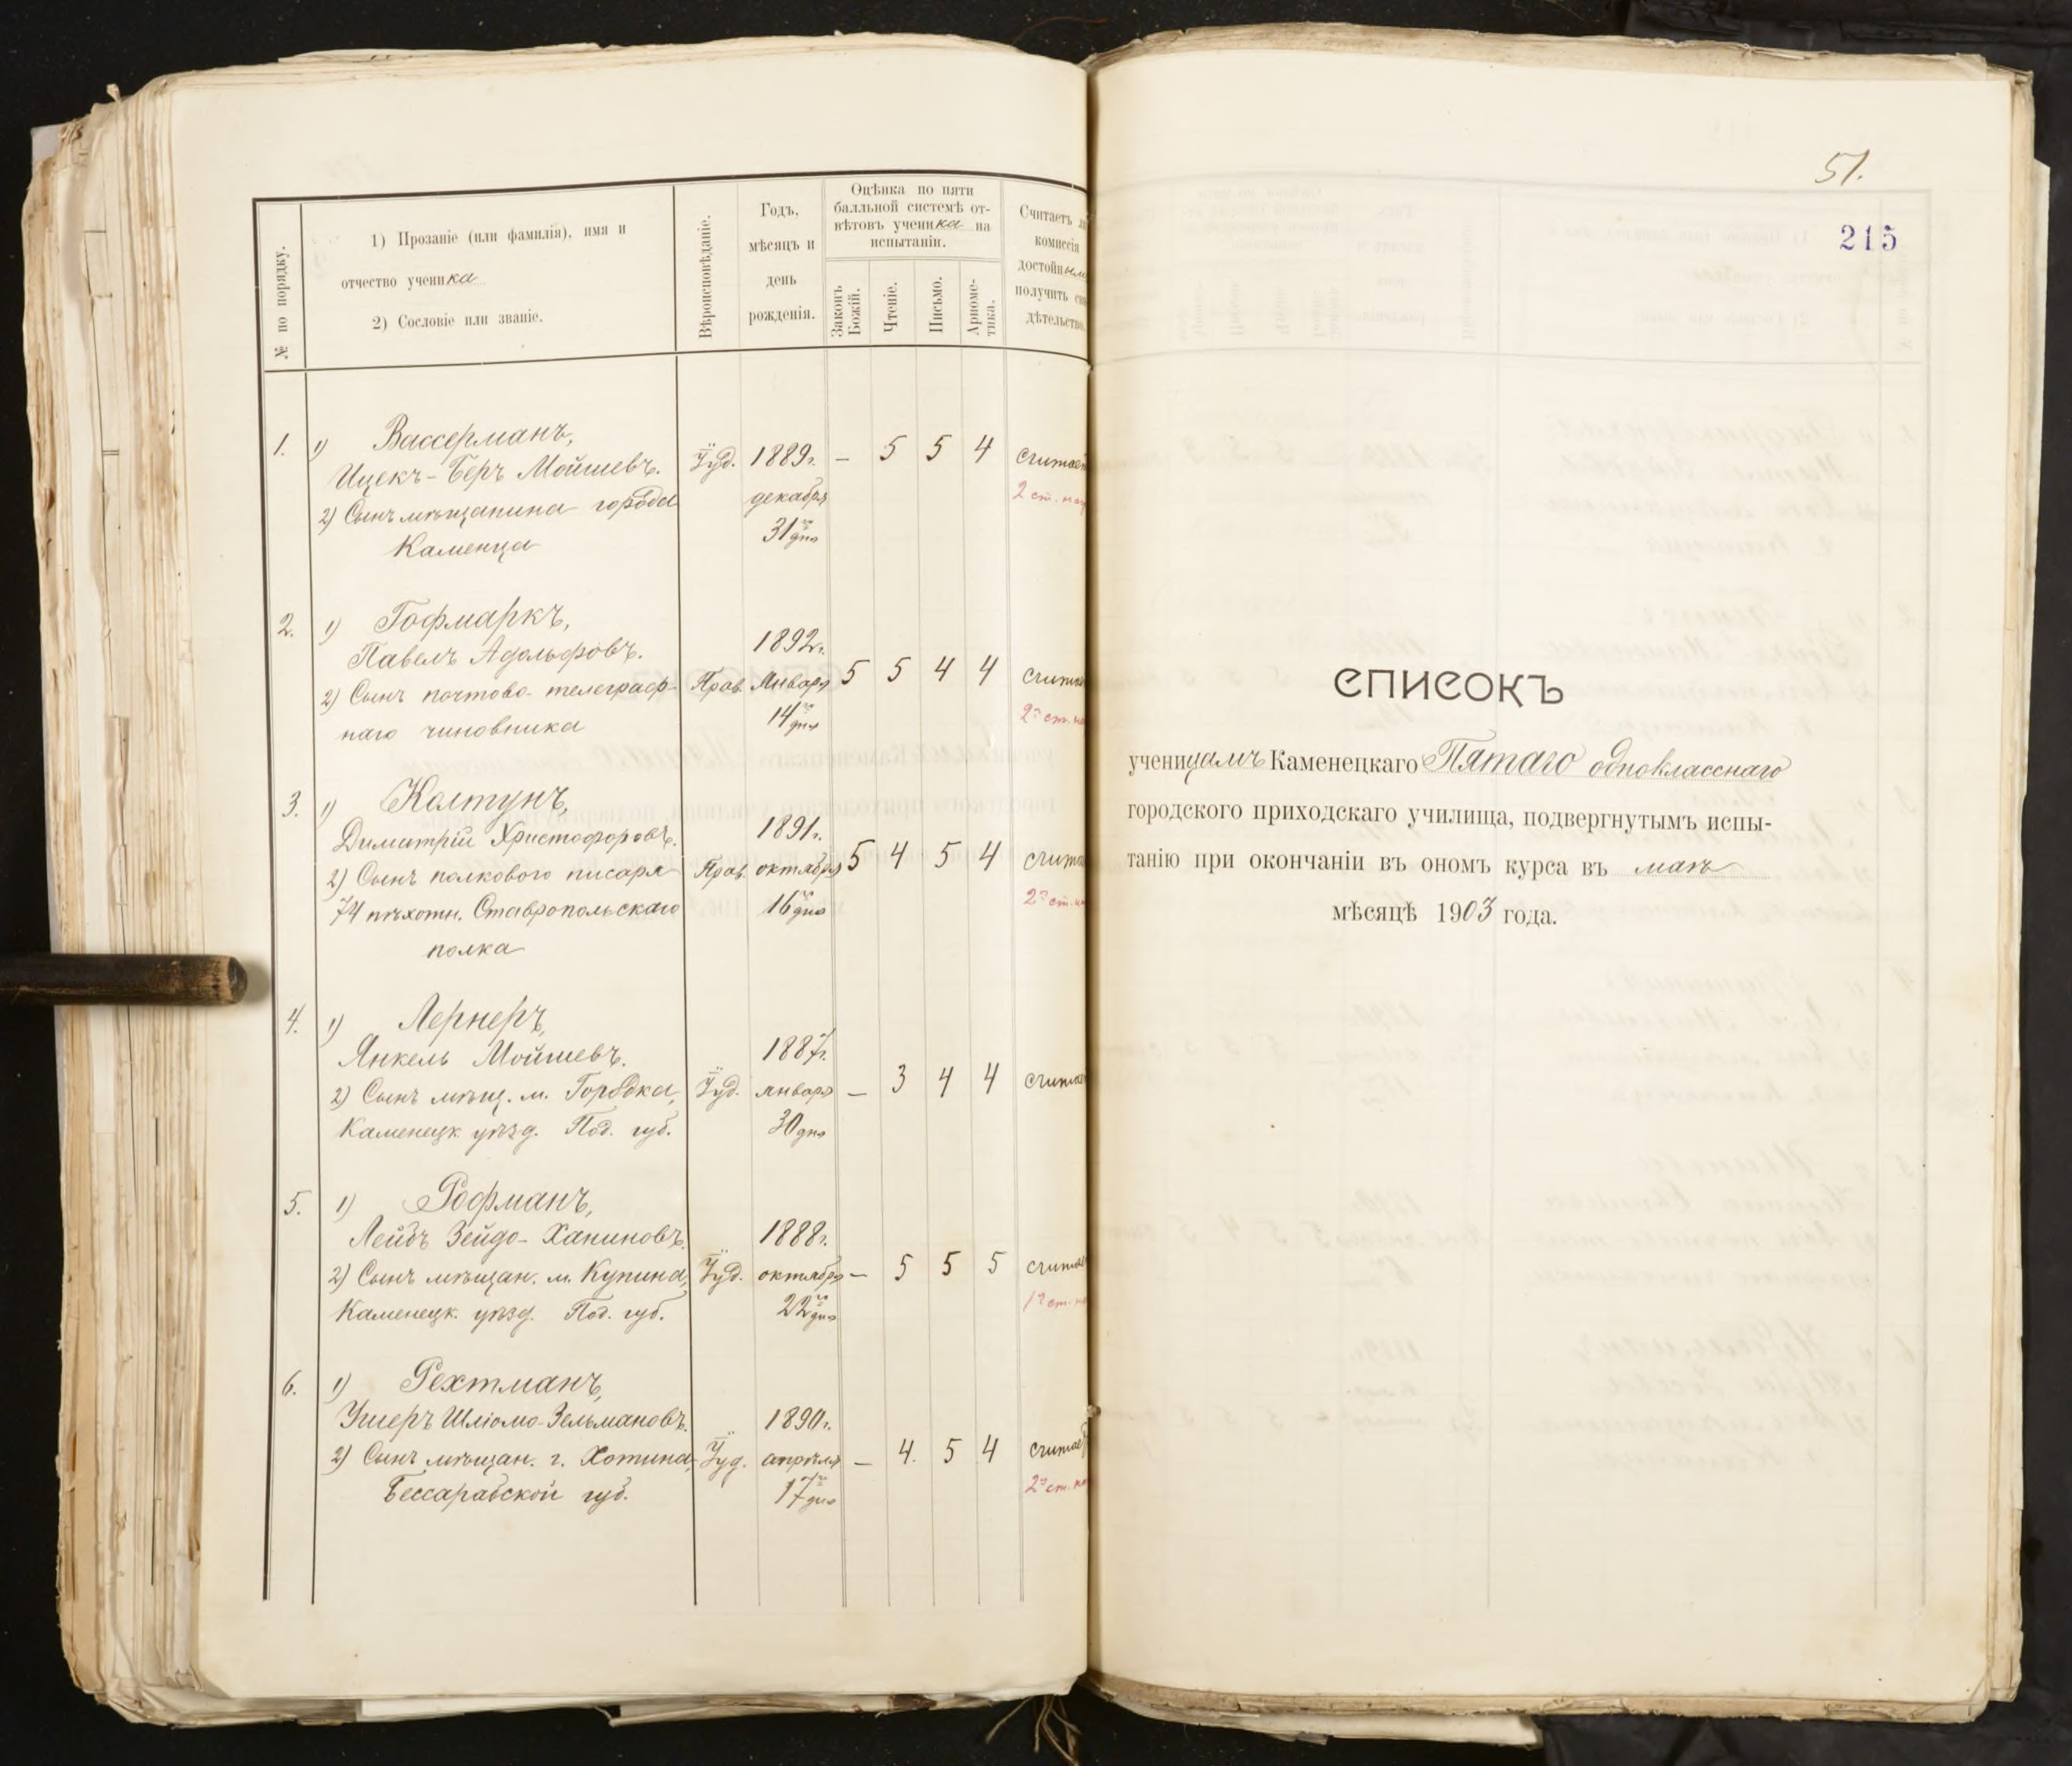 № по порядку.
1) Прозаніе (или фамилія), имя и
отчество ученика
2) Сословіе или званіе.
Вѣроисповѣданіе.
Годъ,
мѣсяцъ и
день
рожденія.
Оцѣнка по пяти
балльной системѣ от-
вѣтовъ ученика на
испытаніи.
Законъ
Божій.
Чтеніе.
Письмо.
Ариѳме-
тика.
Считаетъ
комиссія
достойнымъ
получить
дѣтельство.
1. 1) Вассерманъ,
Ицекъ-Беръ Мойшевъ. Іуд. 1889г. — 5 5 4 считает
2) Сынъ мѣщанина города декабря 2 ст.
Каменца 31го дня
2. 1) Гофмаркъ,
Павелъ Адольфовъ. 1892г.
2) Сынъ почтово-телеграф- Прав. Января 5 5 4 4 считае
наго чиновника 14го дня 2й ст.
3. 1) Колтунъ,
Димитрій Христофоровъ. 1891г.
2) Сынъ полкового писаря Прав. октября 5 4 5 4 счита
74 пѣхотн. Ставропольскаго 16го дня 2й ст.
полка
4. 1) Лернеръ,
Янкель Мойшевъ. 1887г.
2) Сынъ мѣщ. м. Городка, Іуд. января — 3 4 4 считае
Каменецк. уѣзд. Под. губ. 30 дня
5. 1) Рофманъ,
Лейбъ Зейдо-Ханиновъ. 1888г.
2) Сынъ мѣщан. м. Купина, Іуд. октября — 5 5 5 считае
Каменецк. уѣзд. Под. губ. 22го дня 1й ст.
6. 1) Рехтманъ,
Ушеръ Шліомо-Зельмановъ. 1890г.
2) Сынъ мѣщан. г. Хотина, Іуд. апрѣля — 4. 5 4 считает
Бессарабской губ. 17го дня 2й ст.
51.
215
СПИСОКЪ
ученицамъ Каменецкаго Пятаго одноклассного
городского приходскаго училища, подвергнутымъ испы-
танію при окончаніи въ ономъ курса въ маѣ
мѣсяцѣ 1903 года.